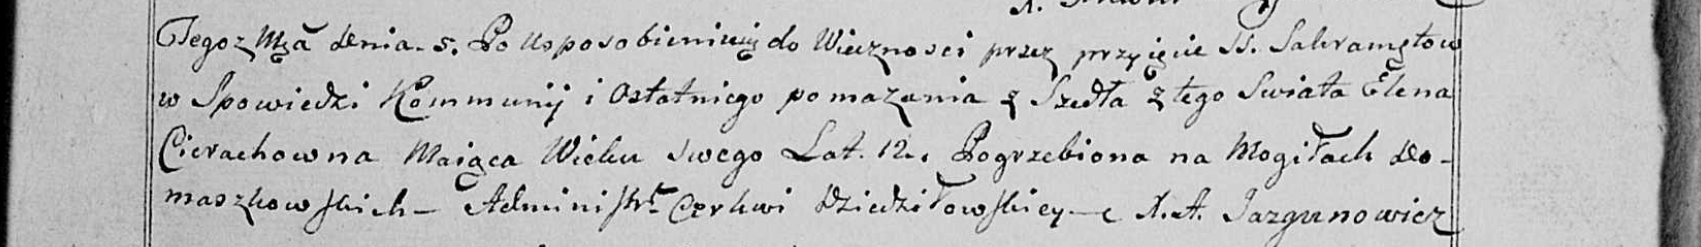 Tegoz Mca dnia. 5. Po Usposobieniu do Wiecznosci przez przyięcie SS. Sakramętow
w Spowiedzi Kommunij i Ostatniego pomazania z Szedła z tego Swiata Elena
Cierachowna Maiąca Wieku swego Lat. 12. Pogrzebiona na Mogiłach Do-
maszkowskich – Administr. Cerkwi Dziedziłowskiey – X. A. Jazgunowicz